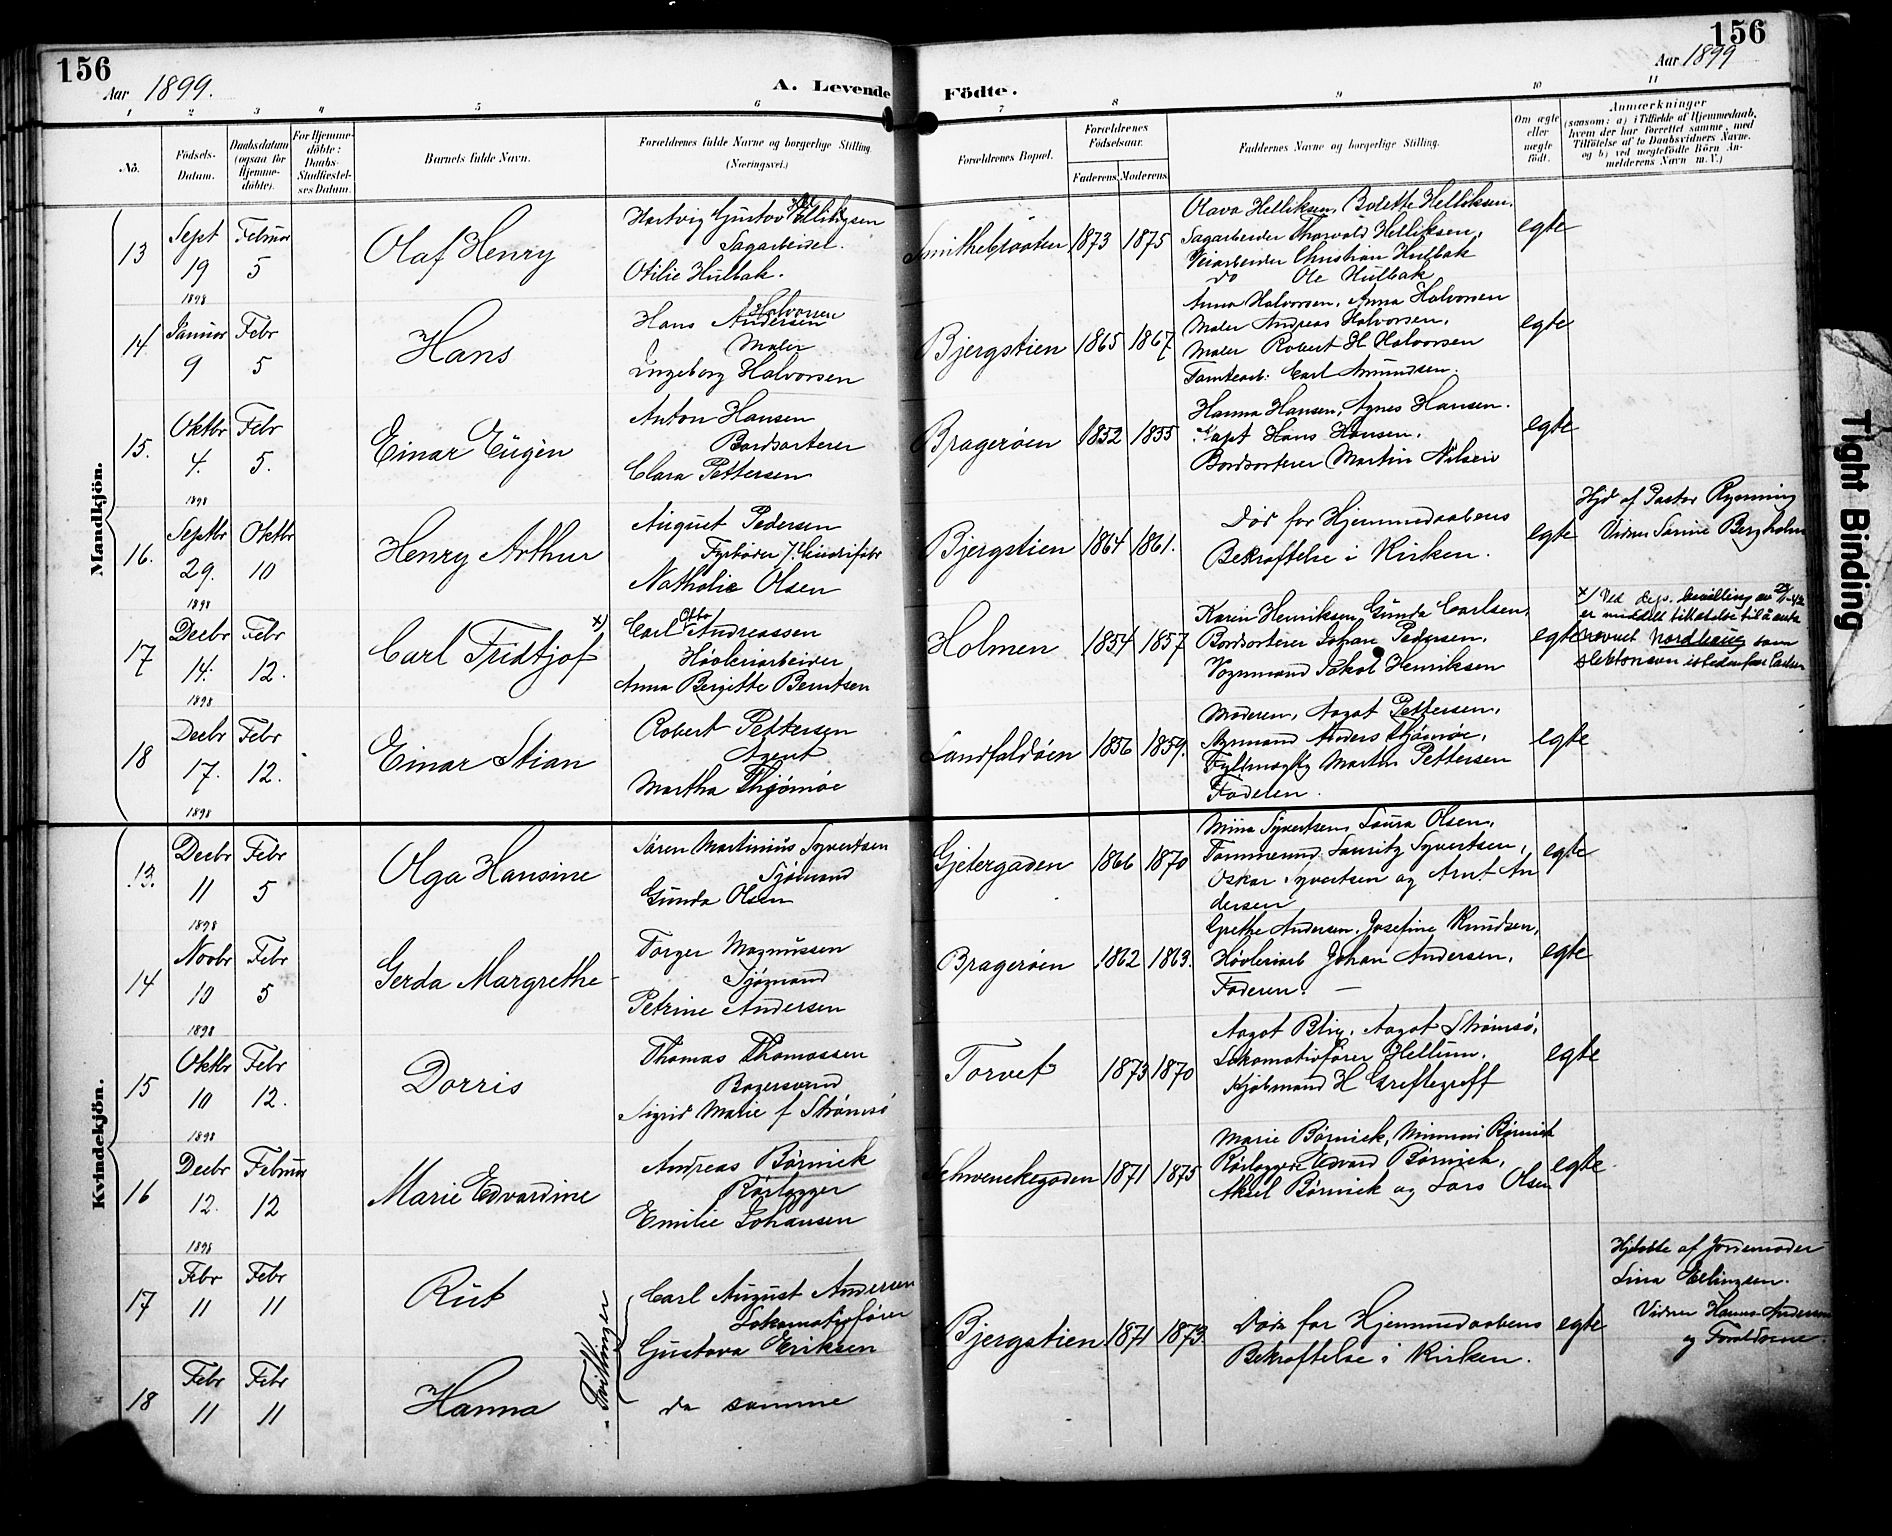 156
156
Aar 1899.
Aar 1899
A. Levende
Födte.
1
2
3
4
5
6
7
8
9
10
11
No.
Födsels-
Datum.
Daabsdatum
(ogsaa for
Hjemme-
döbte).
For Hjemme-
döbte:
Daabs-
Stadfæstel-
ses Datum.
Barnets fulde Navn.
Forældrenes fulde Navne og borgerlige Stilling.
(Næringsvei.)
Forældrenes Bopæl.
Forældrenes
Födselsaar.
Faderens.
Moderens.
Faddernes Navne og borgerlige Stilling.
Om ægte
eller
uægte
födt.
Anmærkninger
(saasom: a) i Tilfælde af Hjemmedaab,
hvem der har forrettet samme, med
Tilföielse af to Daabsvidners Navne.
og b) ved uægtefödte Börn An-
melderens Navn m. V.)
Mandkjön.
13
Sept
19
1898
Februar
5
Olaf Henry
Hartvig Gustav
Sagarbeider.
Otilie Hulbak.
Smithebraaten
1873
1875
Olava Helliksen, Bolette Helliksen.
Sagarbeider Thorvald Helliksen,
Veiarbeider Christian Hulbak
do Ole Hulbak
egte
14
Januar
9
Febr
5
Hans
Hans Andersen
Halvorsen
Maler
Ingeborg Halvorsen
Bjergstien
1865
1867
Anna Halvorsen, Anna Halvorsen
Maler Andreas Halvorsen,
Maler Robert H Halvorsen
Tomtearb: Carl Amundsen.
egte
15.
Oktbr
4.
1898
Febr
5.
Einar Eugén
Anton Hansen
Bordsorterer
Clara Pettersen
Bragerøen
1852
1855
Hanna Hansen, Agnes Hansen.
Kapt Hans Hansen.
Bordsorterer Martin Nilsen
egte
16.
Septbr
29.
1898
Oktbr
10
Henry Arthur
August Pedersen
Fyrbøder
Nathalie Olsen
Bjergstien
1864
1861.
Død før Hjemmedaabens
Bekræftelse i Kirken.
egte
Hjd af Pastor Rynning
Vidner Bergholm
17
Decbr
14.
1898
Febr
12.
Carl Fridtjof x)
Carl Otto Andreassen
Høvleriarbeider
Anna Bergitte Berntsen
Holmen
1854
1857
Karen Henriksen, Gunda Carlsen,
Bordsorterer Johan Pedersen,
Vognmand Jakob Henriksen
egte
x) Ved dep. bevilling av
er meddelt tillatelse til å anta
navnet Nordhaug som
slektsnavn istedenfor Carlsen
18
Decbr
17.
1898
Febr
12.
Einar Stian
Robert Pettersen
Agent
Martha Thjømøe
Landfaldøen
1856
1859.
Moderen, Aagot Pettersen,
Styrmand Anders Thjømøe,
Fuldmægtig Martin Pettersen
Faderen.
egte
Kvindekjön.
13.
Decbr
11
1898
Febr
5
Olga Hansine
Søren Martinius Syvertsen
Sjømand
Gunda Olsen
Gjetergaden
1866
1870
Mina Syvertsen, Laura Olsen,
Tømmermd Lauritz Syvertsen,
Oskar Syvertsen og Arnt An
dersen
egte
14
Novbr
10
1898
Febr
5
Gerda Margrethe
Torger Magnussen
Sjømand
Petrine Andersen
Bragerøen
1862
1863.
Grethe Andersen, Josefine Knudsen,
Høvleriarb Johan Andersen,
Faderen. —
egte
15
Oktbr
10
1898
Febr
12.
Dorris
Thomas Thomassen
Bagersvend
Sigrid Marie f Strømsø
Torvet
1873
1870
Aagot Blix, Aagot Strømsø,
Lokomotivfører Hellum,
Kjøbmand H Greftegreff
egte
16
Decbr
12.
1898
Februar
12
Marie Edvardine
Andreas Børnick
Rørlægger
Emilie Johansen
Schwenckegaden
1871
1875
Marie Børnick, Mimmi Børnick
Rørlægger Edvard Børnick,
Aksel Børnick og Lars Olsen
egte.
17
Febr
11
Febr
11
Rut
Tvillinger
Carl August Andersen
Lokomotivfører
Gustava Eriksen
Bjergstien
1871
1873
Døde før Hjemmedaabens
Bekræftelse i Kirken.
egte
Hjdøbte af Jordemoder
Lina Erlingsen.
Vidner Hanna Andersen
og Forældrene.
18
Febr
11
Febr
11
Hanna
de samme
Tight Binding